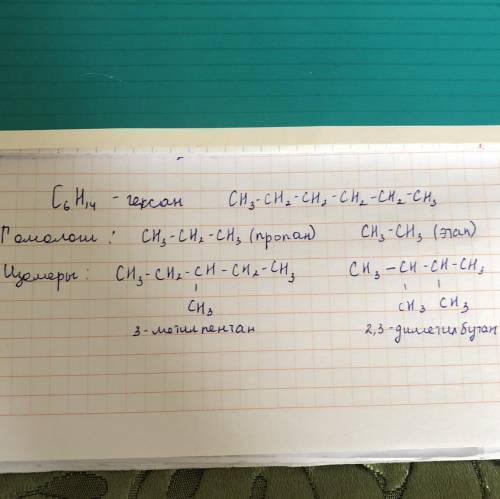 C₆H₁₄ - гексан CH₃-CH₂-CH₂-CH₂-CH₂-CH₃
Гомологи: CH₃-CH₂-CH₃ (пропан) CH₃-CH₃ (этан)
Изомеры: CH₃-CH₂-CH-CH₂-CH₃ CH₃-CH-CH-CH₃
CH₃ CH₃ CH₃
3-метилпентан 2,3-диметилбутан